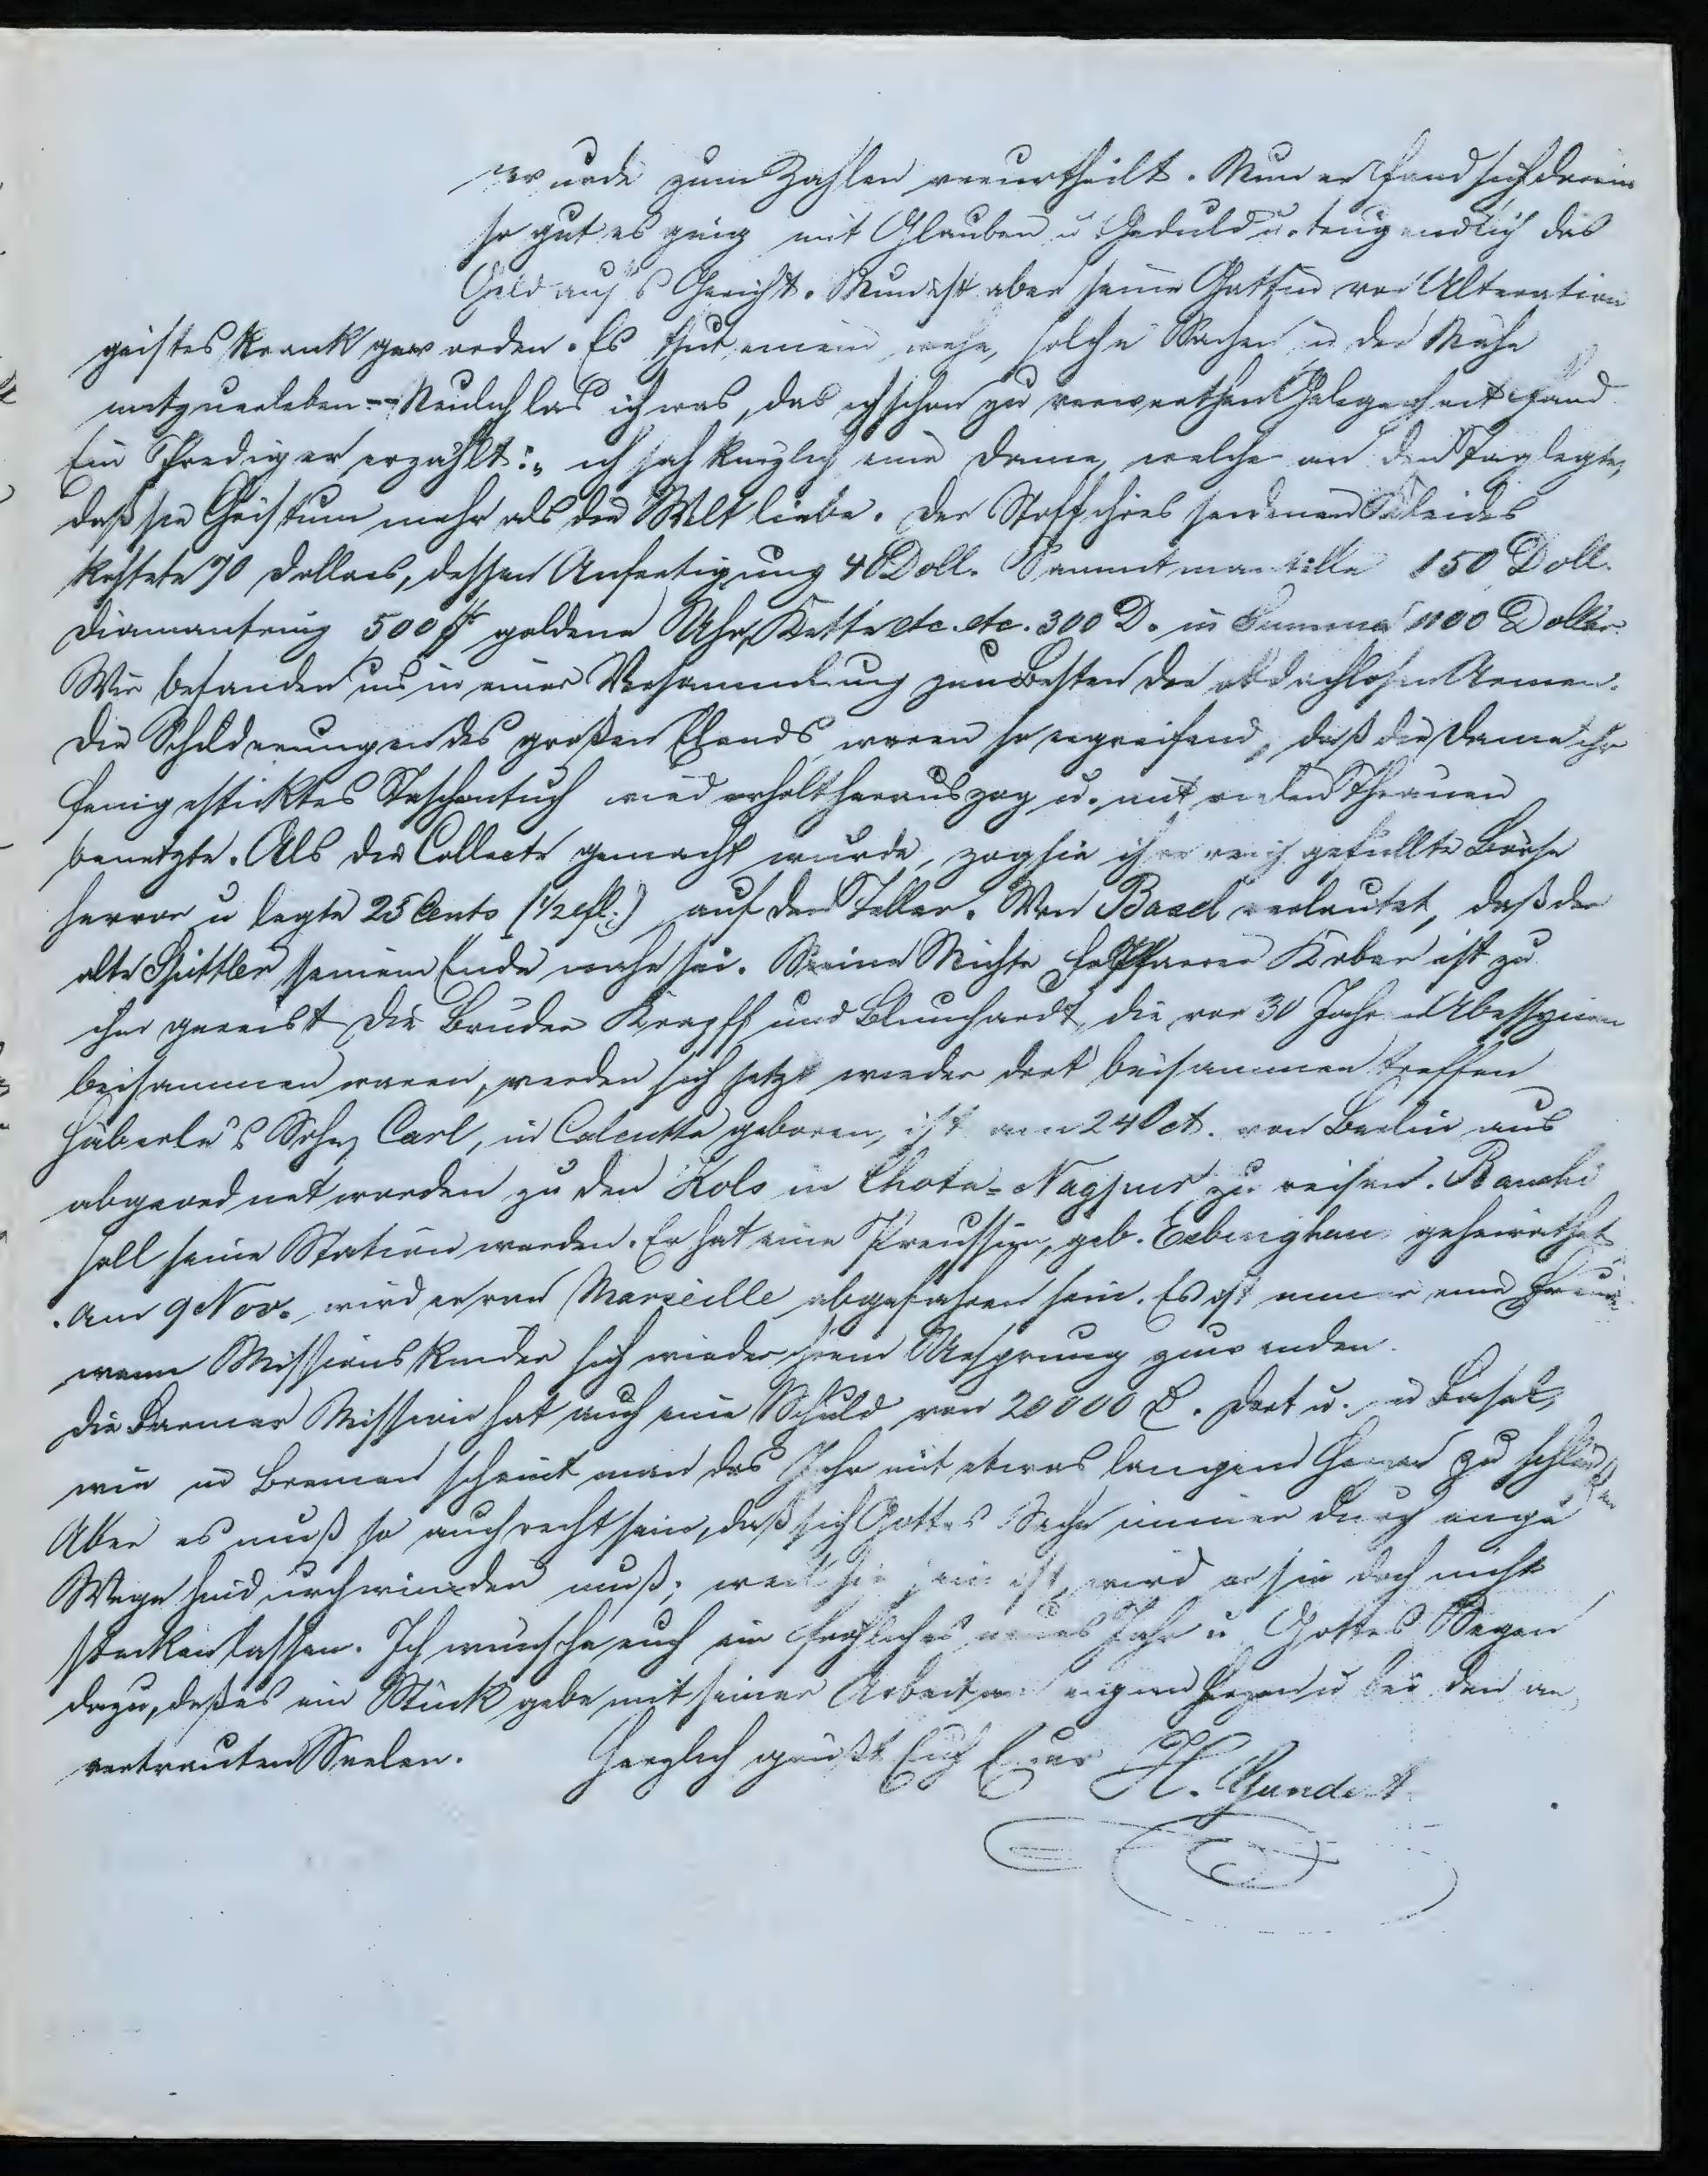 wurde zum Zahlen verurtheilt. Nun er fand sich darein
so gut es ging mit Glauben u Geduld u. trug endlich das
Geld aufs Gericht. Nun ist aber seine Gattin vor Alteration
geisteskrank geworden. Es thut einem wehe, solche Sachen in der Nähe
mitzuerleben -- Neulich las ich was, das ich schon zu verwerthen Gelegenheit fand
Ein Prediger erzählt: „ich sah kürzlich eine Dame, welche an den Tag legte,
daß sie Christum mehr als die Welt liebe. Der Stoff ihres seidenen Kleides
kostete 70 Dollars, dessen Anfertigung 40 Doll. Sammtmantille 150 Doll.
Diamantring 500 $ goldene Uhr, Kette etc. etc. 300 D. in Summa 1100 Dollar.
Wir befanden uns in einer Versammlung zum Besten der obdachlosen Armen.
Die Schilderungen des großen Elends waren so ergreifend, daß die Dame ihr
fein gesticktes Taschentuch wiederholt herauszog u. mit vielen Thränen
benetzte. Als die Collecte gemacht wurde, zog sie ihre reich gefüllte Börse
hervor u legte 25 Cents (1/2 fl.) auf den Teller. Von Basel verlautet, daß der
alte Spittler seinem Ende nahe sei. Seine Nichte Fr Pfarrer Kober ist zu
ihm gereist Die Brüder Krapff und Blumhardt, die vor 30 Jahren Abessynien
beisammen waren, werden sich jetzt wieder dort beisammen treffen
Häberle's Sohn Carl, in Calcutta geboren, ist am 24 Oct. von Berlin aus
abgeordnet worden zu den Kols in Chota-Nagpur zu reisen. Ranchi
soll seine Station werden. Er hat eine Preussin, geb. Ebbinghaus geheirathet
. Am 9 Nov. wird er von Marseille abgefahren sein. Es ist immer eine Freude
wenn Missionskinder sich wieder ihrem Ursprung zuwenden.
Die Barmer Mission hat auch eine Schuld von 20000 . Dort u. in Basel,
wie in Bremen scheint man das Jahr mit etwas bangem Herzen zu schließen
Aber es muß so auch recht sein, daß sich Gottes Sache immer durch enge
Wege hindurchwinden muß; weil sie sein ist, wird er sie doch nicht
stecken lassen. Ich wünsche euch ein fröhliches neues Jahr u Gottes Segen
dazu, daß es ein Stück gebe mit seiner Arbeit am eigenen Herzen u bei den an
vertrauten Seelen. Herzlich grüßt Euch Euer H. Gundert